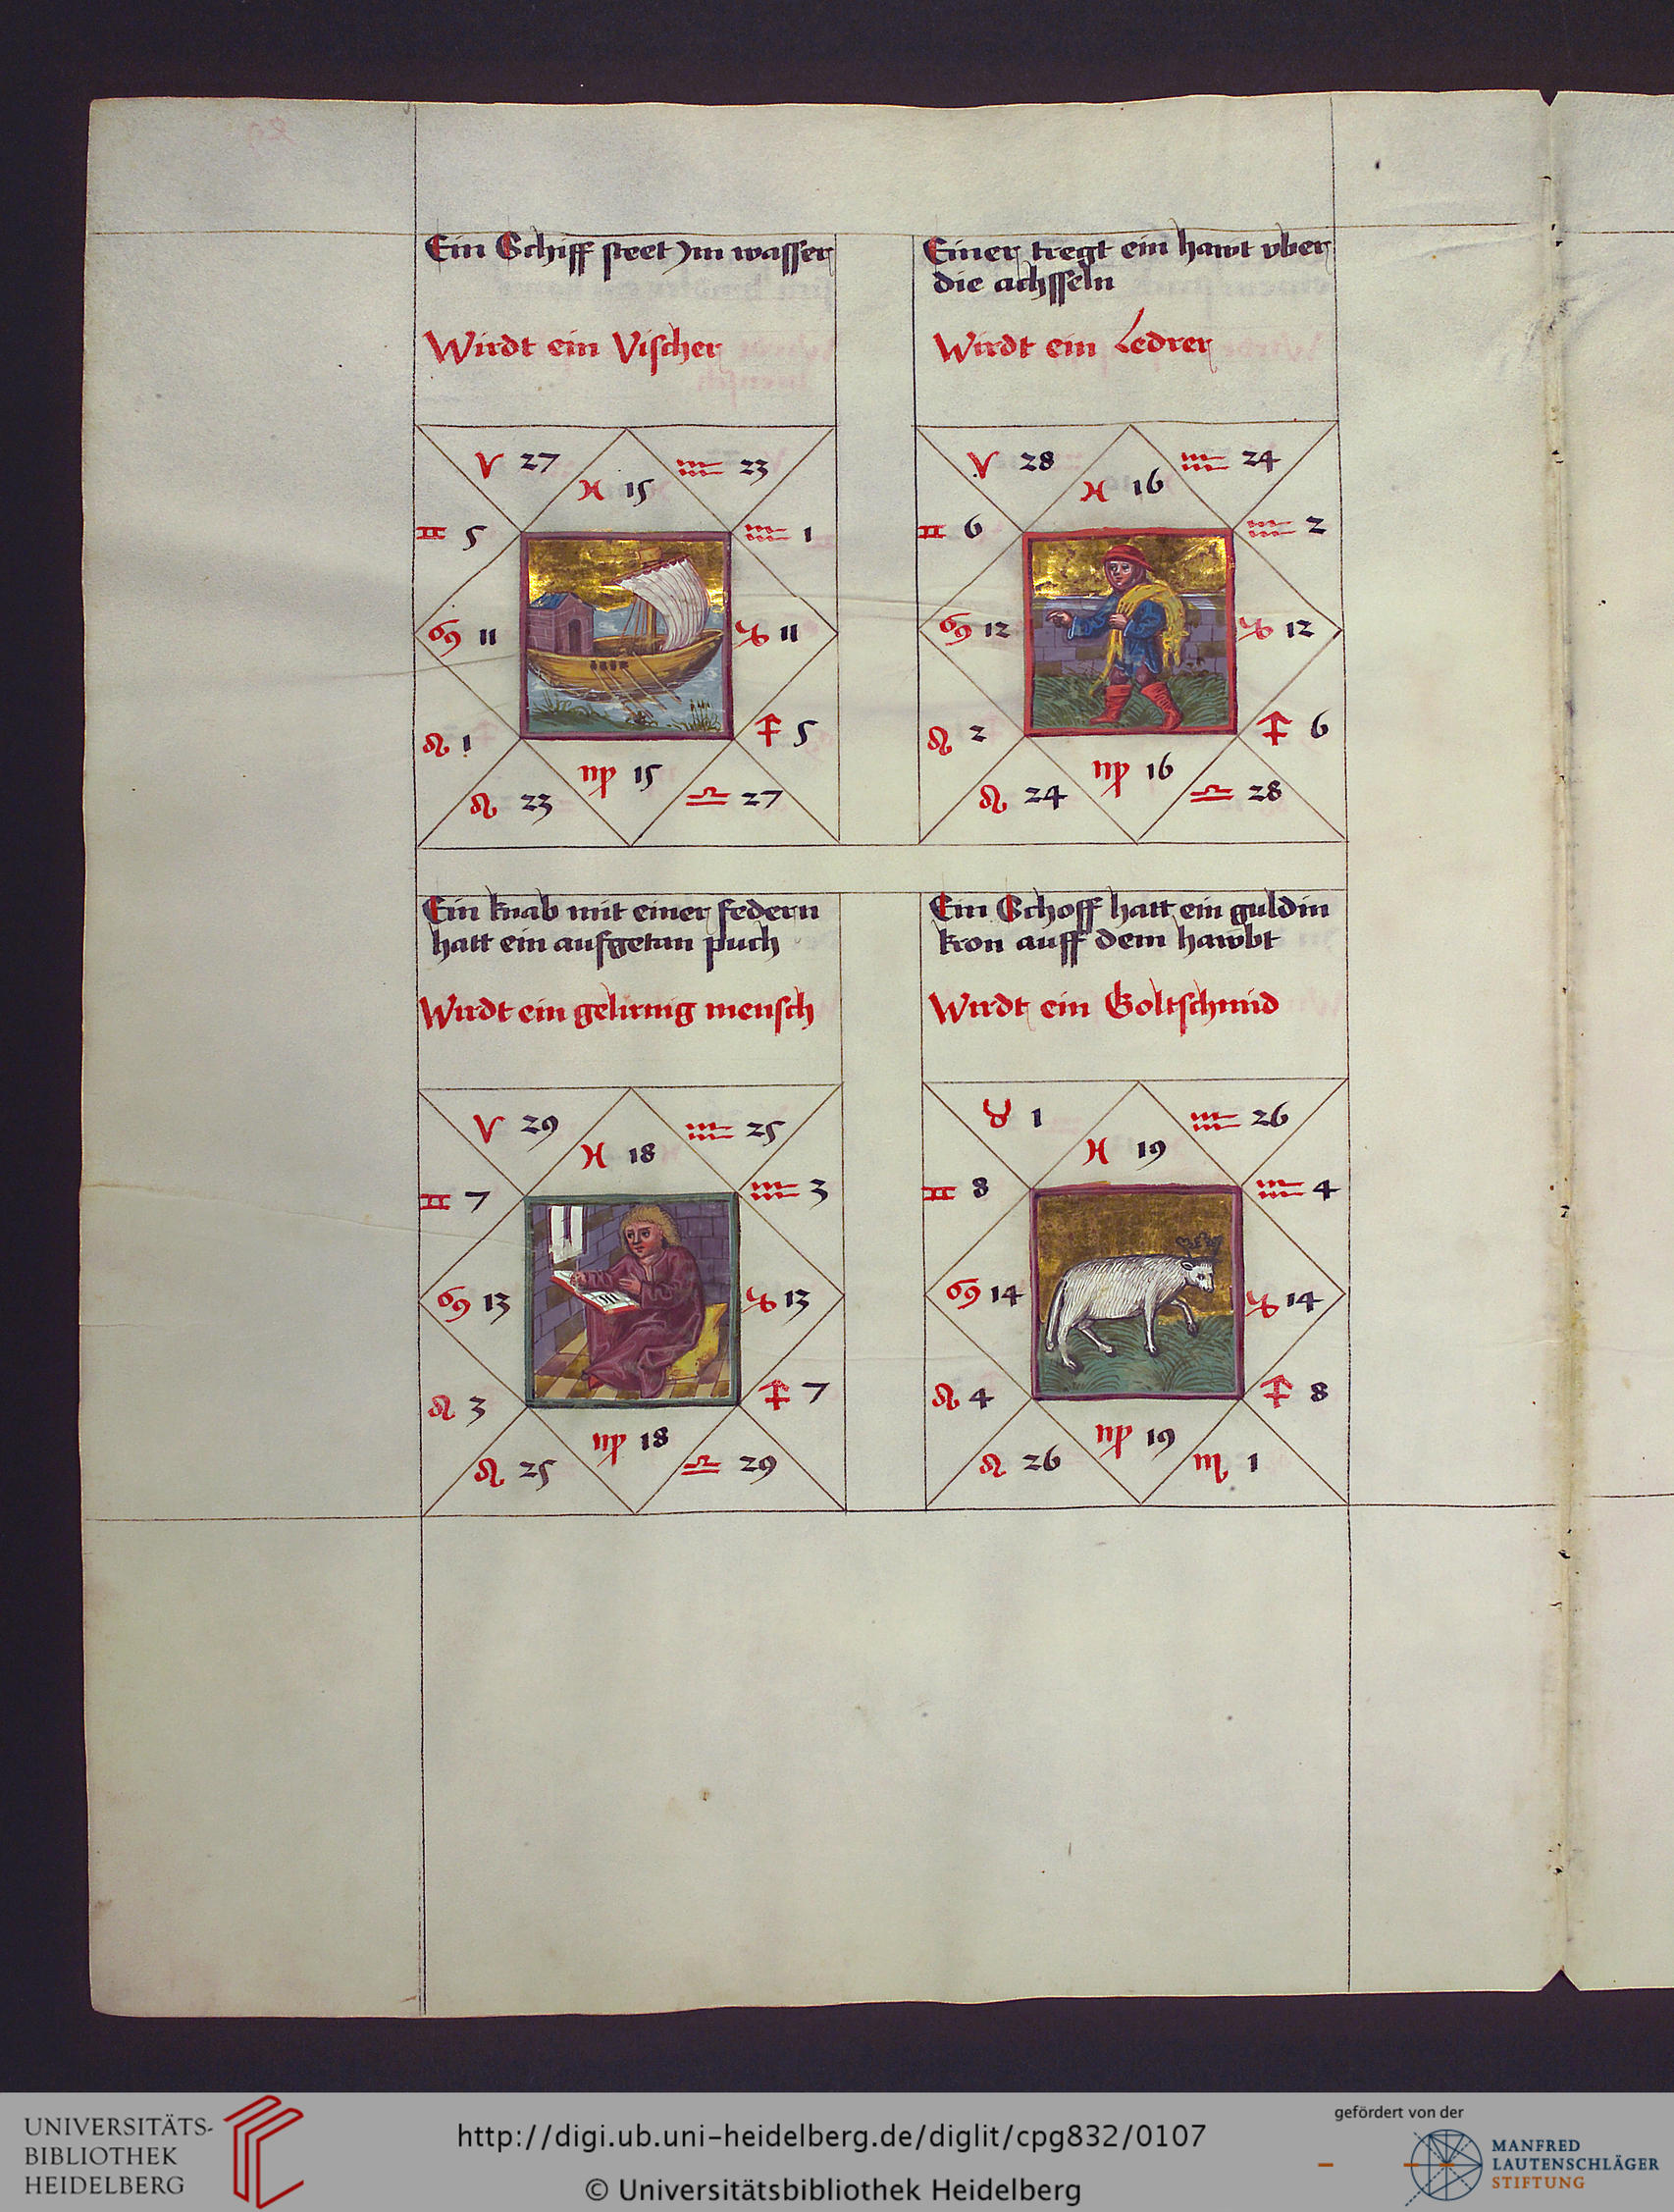 Ein Schiff steet ym wasser
Wirdt ein Vischer
V 27
♓ 15
♒ 23
♊ 5
♒ 1
♋ 11
♑ 11
♌ 1
♐ 5
♍ 15
♌ 23
♎ 27
Einer tregt ein hawt vber
die achsseln
Wirdt ein Ledrer
V 28
♓ 16
♒ 24
♊ 6
♒ 2
♋ 12
♑ 12
♌ 2
♐ 6
♍ 16
♌ 24
♎ 28
Ein knab mit einer federn
hatt ein aufgetan puch
Wirdt ein gelirnig mensch
V 29
♓ 18
♒ 25
♊ 7
♒ 3
♋ 13
♑ 13
♌ 3
♐ 7
♍ 18
♌ 25
♎ 29
Ein Schoff hatt ein guldin
kron auff dem hawbt
Wirdt ein Goltschmid
♉ 1
♓ 19
♒ 26
♊ 8
♒ 4
♋ 14
♑ 14
♌ 4
♐ 8
♍ 19
♌ 26
♏ 1
UNIVERSITÄTS-
BIBLIOTHEK
HEIDELBERG
http://digi.ub.uni-heidelberg.de/diglit/cpg832/0107
© Universitätsbibliothek Heidelberg
gefördert von der
MANFRED
LAUTENSCHLÄGER
STIFTUNG